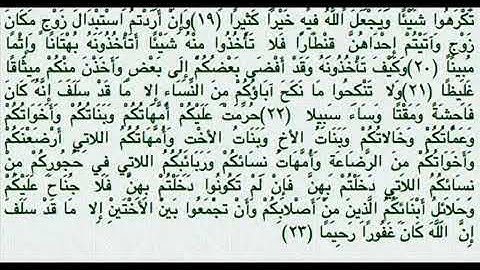 تَكْرَهُوا شَيْئًا وَيَجْعَلَ اللَّهُ فِيهِ خَيْرًا كَثِيرًا (١٩)وَإِنْ أَرَدْتُمُ اسْتِبْدَالَ زَوْجٍ مَكَانَ
زَوْجٍ وَآتَيْتُمْ إِحْدَاهُنَّ قِنْطَارًا فَلَا تَأْخُذُوا مِنْهُ شَيْئًا أَتَأْخُذُونَهُ بُهْتَانًا وَإِثْمًا
مُبِينًا (٢٠)وَكَيْفَ تَأْخُذُونَهُ وَقَدْ أَفْضَى بَعْضُكُمْ إِلَى بَعْضٍ وَأَخَذْنَ مِنْكُمْ مِيثَاقًا
غَلِيظًا (٢١)وَلَا تَنْكِحُوا مَا نَكَحَ آبَاؤُكُمْ مِنَ النِّسَاءِ إِلَّا مَا قَدْ سَلَفَ إِنَّهُ كَانَ
فَاحِشَةً وَمَقْتًا وَسَاءَ سَبِيلًا (٢٢)حُرِّمَتْ عَلَيْكُمْ أُمَّهَاتُكُمْ وَبَنَاتُكُمْ وَأَخَوَاتُكُمْ
وَعَمَّاتُكُمْ وَخَالَاتُكُمْ وَبَنَاتُ الْأَخِ وَبَنَاتُ الْأُخْتِ وَأُمَّهَاتُكُمُ اللَّاتِي أَرْضَعْنَكُمْ
وَأَخَوَاتُكُمْ مِنَ الرَّضَاعَةِ وَأُمَّهَاتُ نِسَائِكُمْ وَرَبَائِبُكُمُ اللَّاتِي فِي حُجُورِكُمْ مِنْ
نِسَائِكُمُ اللَّاتِي دَخَلْتُمْ بِهِنَّ فَإِنْ لَمْ تَكُونُوا دَخَلْتُمْ بِهِنَّ فَلَا جُنَاحَ عَلَيْكُمْ
وَحَلَائِلُ أَبْنَائِكُمُ الَّذِينَ مِنْ أَصْلَابِكُمْ وَأَنْ تَجْمَعُوا بَيْنَ الْأُخْتَيْنِ إِلَّا مَا قَدْ سَلَفَ
إِنَّ اللَّهَ كَانَ غَفُورًا رَحِيمًا (٢٣)